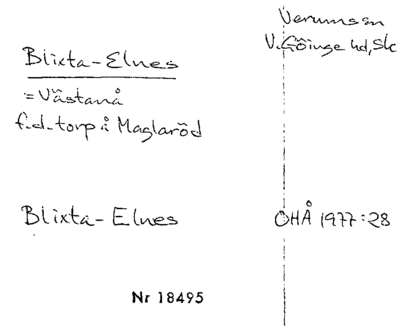 Verums sn
V. Göinge hd, Sk
Blixta-Elnes
= Västanå
f.d. torp å Maglaröd
Blixta-Elnes OHÅ 1977:28
Nr 18495